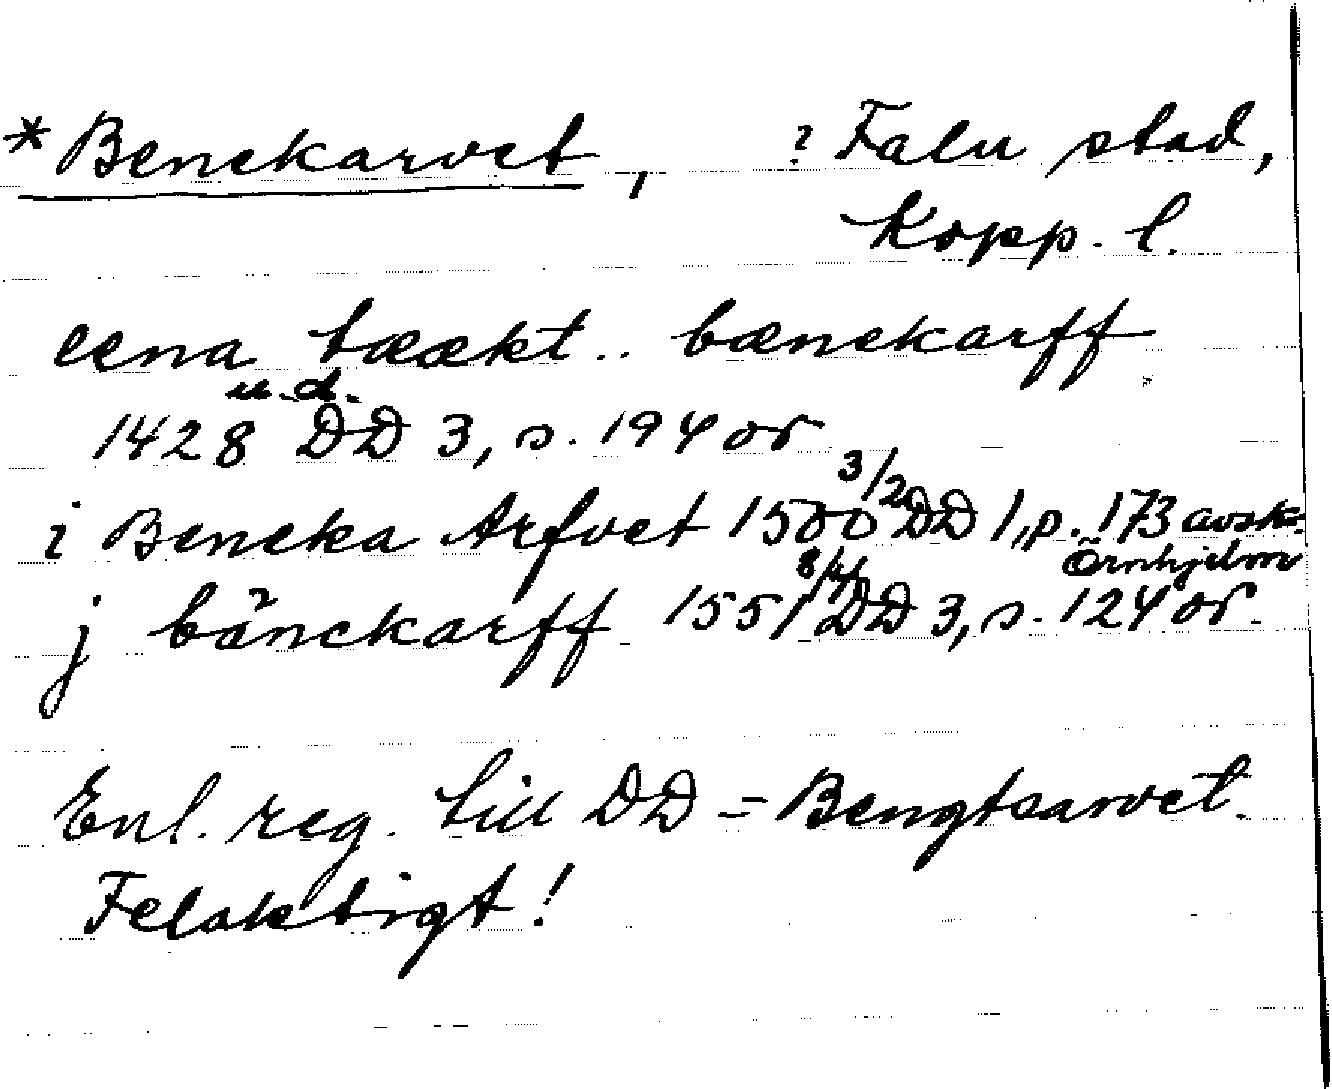 *Benekarvet, ? Falu stad,
Kopp. l.
eena tæækt .. bænekarff
1428 u.d. DD 3, s. 194 or
i Beneka Arfvet 1500 3/2 DD 1, p. 173 avskr.
Örnhjelm
j bänekarff 1551 8/4 DD 3, s. 124 or.
Enl. reg. till DD = Bengtsarvet.
Felaktigt!